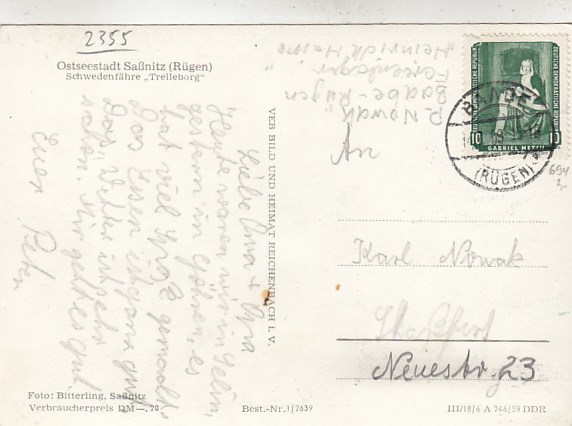 2355
Ostseestadt Saßnitz (Rügen)
Schwedenfähre „Trelleborg"
Liebe Oma + Opa
Heute waren wir in Sellin,
gestern in Göhren, es
hat viel Spaß gemacht.
Das Essen ist ganz gut
Das Wetter ist sehr
schön. Mir geht es gut.
Euer Peter
VEB BILD UND HEIMAT REICHENBACH i. V.
P. Nowak
Baabe-Rügen
Ferienlager
„Heinrich Heine"
DEUTSCHE DEMOKRATISCHE REPUBLIK
10 GABRIEL METSU 10
BAABE
(RÜGEN)
694
An
Karl Nowak
Staßfurt
Neuestr. 23
Foto: Bitterling, Saßnitz
Verbraucherpreis DM —.20
Best.-Nr. 1/7639
III/18/6 A 746/59 DDR